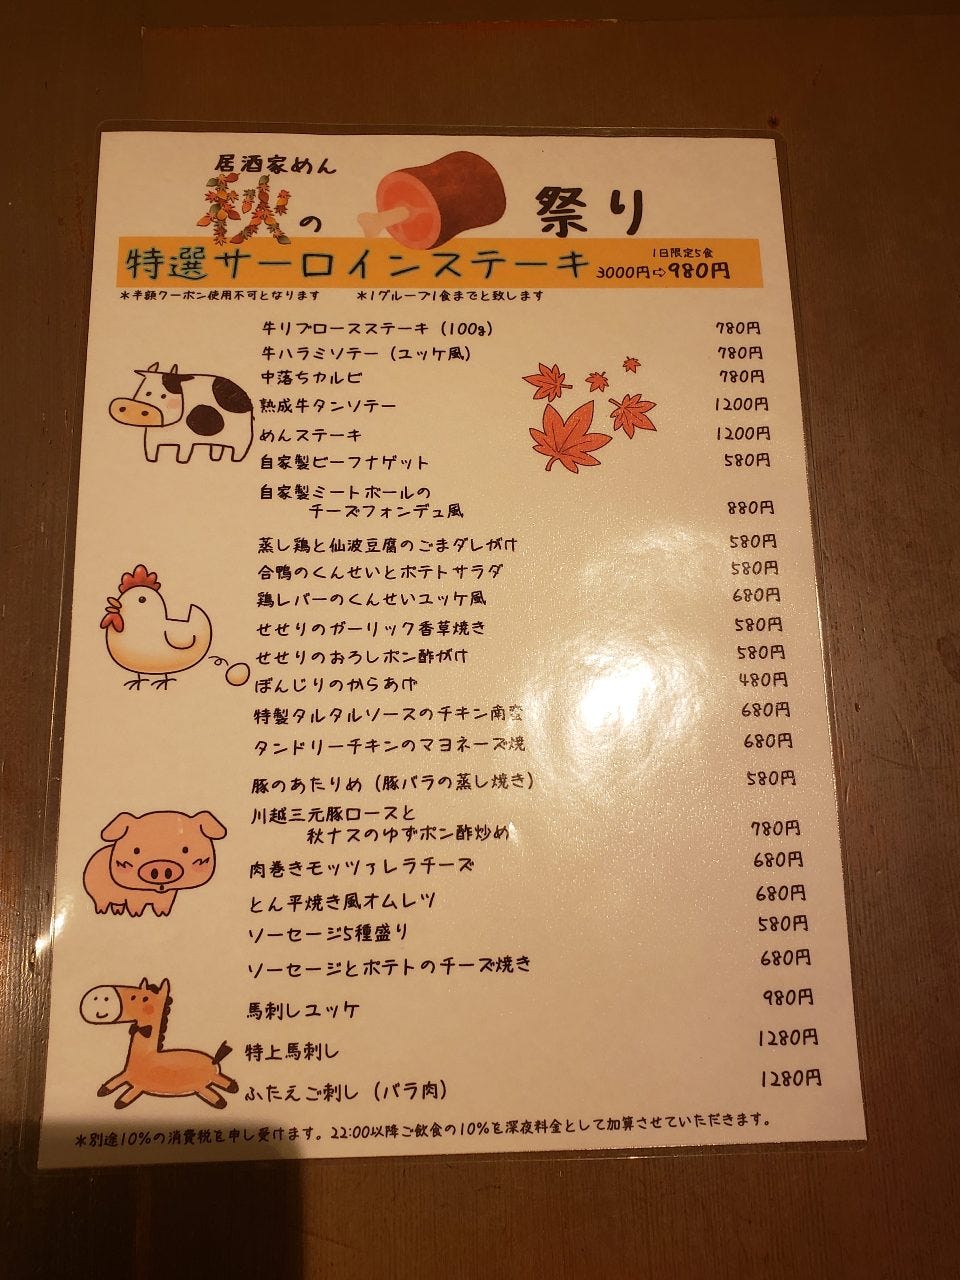 居酒家めん
秋の 祭り
特選サーロインステーキ 1日限定5食 3000円⇨980円
*半額クーポン使用不可となります *1グループ1食までと致します
牛リブロースステーキ (100g) 780円
牛ハラミソテー (ユッケ風) 780円
中落ちカルビ 780円
熟成牛タンソテー 1200円
めんステーキ 1200円
自家製ビーフナゲット 580円
自家製ミートボールの
チーズフォンデュ風 880円
蒸し鶏と仙波豆腐のごまダレがけ 580円
合鴨のくんせいとポテトサラダ 580円
鶏レバーのくんせいユッケ風 680円
せせりのガーリック香草焼き 580円
せせりのおろしポン酢がけ 580円
ぼんじりのからあげ 480円
特製タルタルソースのチキン南蛮 680円
タンドリーチキンのマヨネーズ焼 680円
豚のあたりめ (豚バラの蒸し焼き) 580円
川越三元豚ロースと
秋ナスのゆずポン酢炒め 780円
肉巻きモッツァレラチーズ 680円
とん平焼き風オムレツ 680円
ソーセージ5種盛り 580円
ソーセージとポテトのチーズ焼き 680円
馬刺しユッケ 980円
特上馬刺し 1280円
ふたえご刺し (バラ肉) 1280円
*別途10%の消費税を申し受けます。22:00以降ご飲食の10%を深夜料金として加算させていただきます。